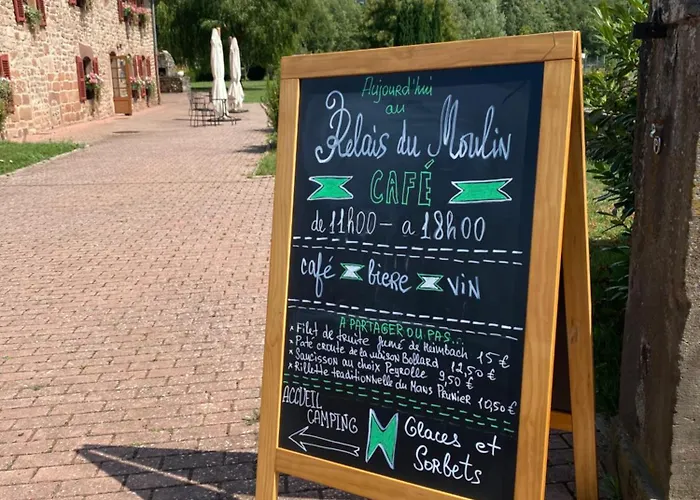 Aujourd'hui
au
Relais du Moulin
CAFÉ
de 11h00 - a 18h00
café biere vin
A PARTAGER OU PAS...
* Filet de truite fumé de Heimbach 15 €
* Paté croute de la maison Bollard 12,50 €
* Saucisson au choix Peyrolle 9,50 €
* Rillette traditionnelle du Mans Prunier 10,50 €
ACCUEIL
CAMPING
Glaces et
Sorbets